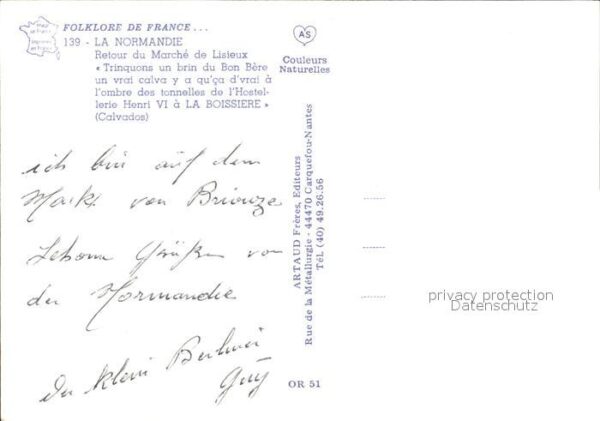 FOLKLORE DE FRANCE...
139 - LA NORMANDIE
Retour du Marché de Lisieux
« Trinquons un brin du Bon Bère
un vrai calva y a qu'ça d'vrai à
l'ombre des tonnelles de l'Hostel-
lerie Henri VI à LA BOISSIERE »
(Calvados)
AS
Couleurs
Naturelles
ich bin auf dem
Markt von Briouze
Grüßen von
der Normandie
der klein Berliner
Guy
ARTAUD Frères, Editeurs
Rue de la Métallurgie - 44470 Carquefou-Nantes
Tél (40) 49.26.56
OR 51
privacy protection
Datenschutz